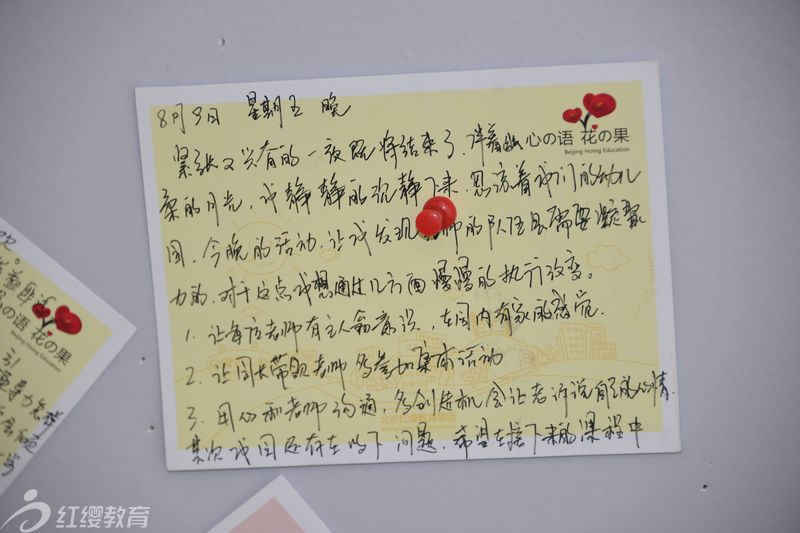 8月9日 星期五 晚
心の语 花の果
Beijing Hoing Education
紧张又兴奋的一夜既将结束了.伴着幽
柔的月光,我静静的沉静下来.思流着我们的幼儿
园.今晚的活动.让我发现 师的队伍是需要凝聚
力的.对于这点我想通过几方面慢慢的执行改变。
1. 让每位老师有主人翁意识,在园内有家的感觉.
2. 让园长带领老师多参加集体活动
3. 用心和老师沟通,多创造机会让老 诉说自己的心情.
其次我园还存在以下问题.希望在接下来的课程中
の语 花の果
Hoing Education
红缨教育